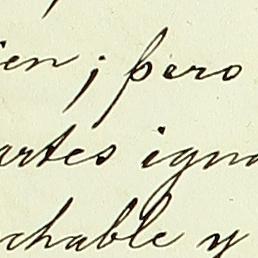 ien; pero
artes igna
chable y